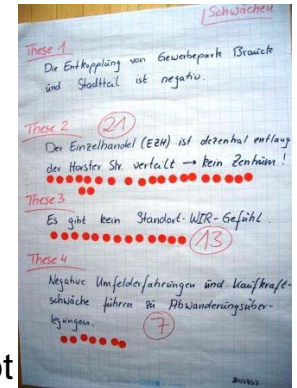 Schwächen
These 1
Die Entkopplung von Gewerbepark Brauck
und Stadtteil ist negativ.
These 2 21
Der Einzelhandel (EZH) ist dezentral entlang
der Horster Str. verteilt → kein Zentrum!
These 3
Es gibt kein Standort-WIR-Gefühl.
13
These 4
Negative Umfelderfahrungen und Kaufkraft-
schwäche führen zu Abwanderungsüber-
legungen.
7
ot